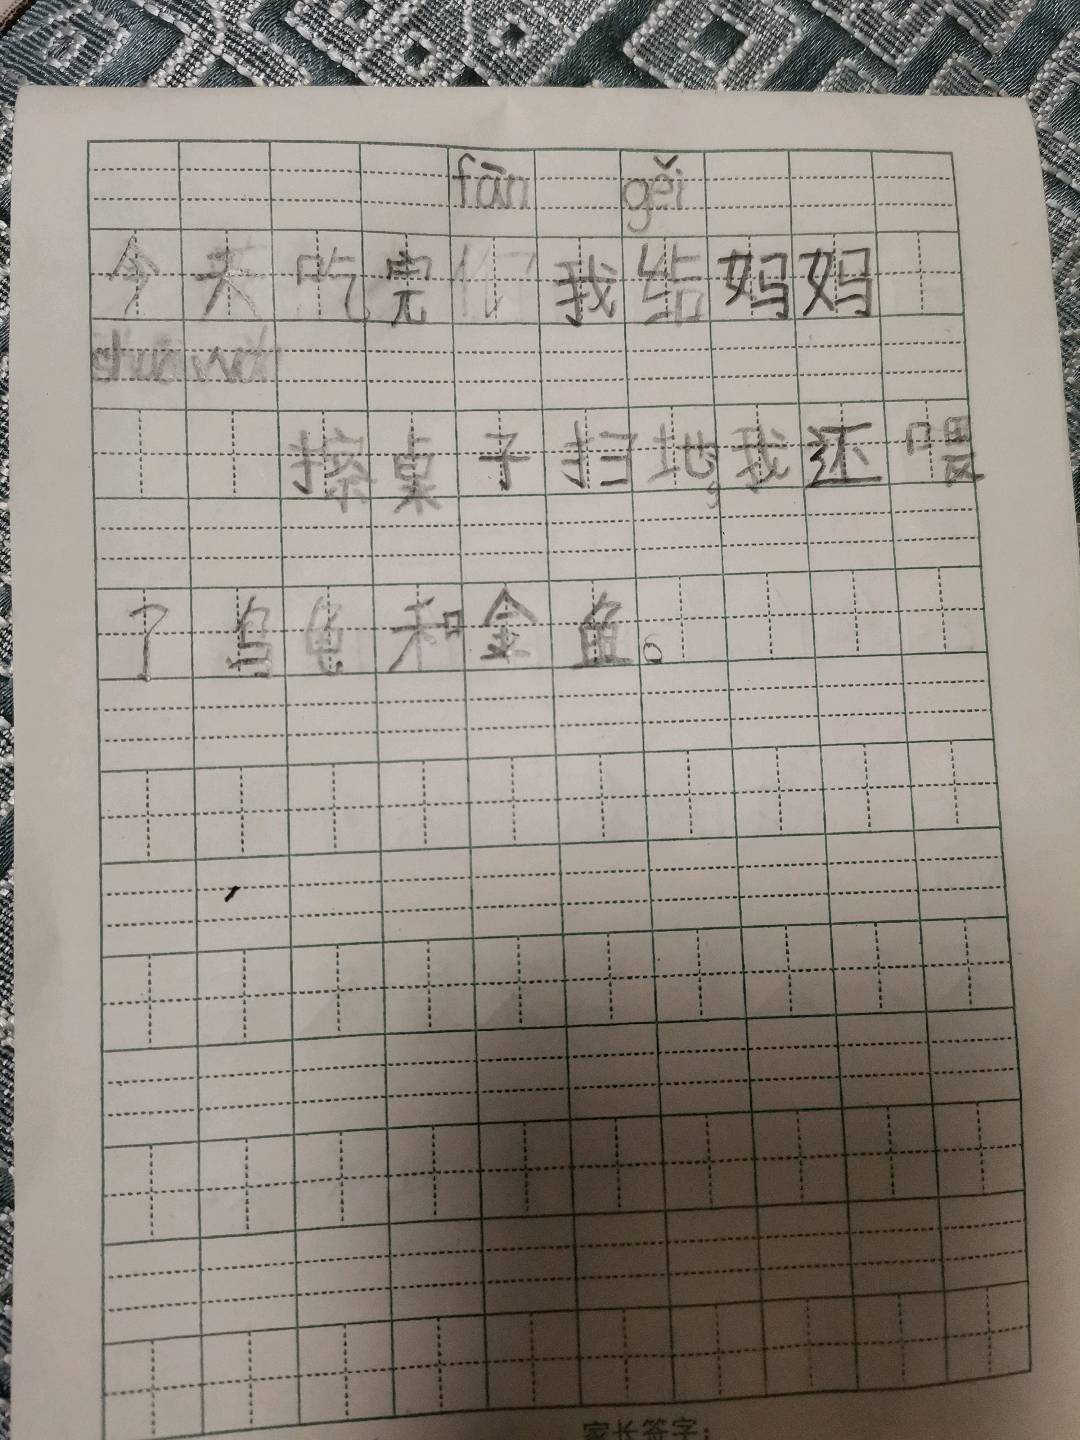 fàn gěi
今天吃完 我给妈妈
擦桌子扫地,我还喂
了乌龟和金鱼。
家长签字: